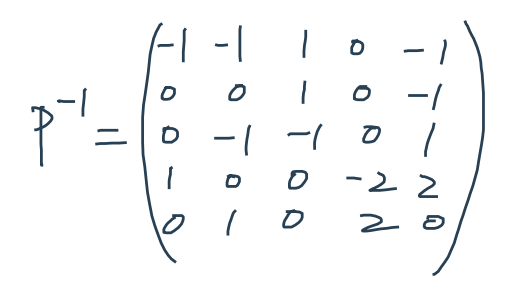 -1 -1 1 0 -1
0 0 1 0 -1
P^-1 = 0 -1 -1 0 1
1 0 0 -2 2
0 1 0 2 0